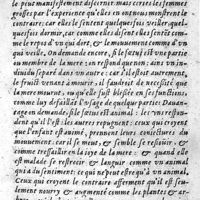 le peut manifestement discerner mais certes les femmes
grosses par l'experience qu'elles en ont nous monstrent le
contraire: car elles le sentent quelquefois veiller quel-
quesfois dormir, car comme elles disent elles sentẽt com-
me le repos d'vn qui dort, & le mouuement comme d'vn
qui veille. On demande encore, si le fœtus est vne partie
ou membre de la mere: on respond que non: ains vn in-
diuidu separé dans vn autre: car s'il estoit autrement,
le fruict venant à mourir, il faudroit de necessité que
la mere mourut, ou qu'elle fust blessée en ses fonctions,
comme luy defaillãt l'vsage de quelque partie: Dauan-
tage on demande, si le fœtus est animal: les vns respondent
qu'il l'est: les autres repugnent: ceux qui croyent
que l'enfant est animé, prennent leurs coniectures du
mouuement: car il se meut, & semble se resiouir, &
comme tressaillir en la ioye de la mere: & quand elle
est malade se restrecir & languir comme vn animal
qui a du sentiment: ce qui ne peut estre qu'à vn animal.
Ceux qui croyent le contraire afferment qu'il est seu-
lement nourry & augmenté comme les plantes & ar-